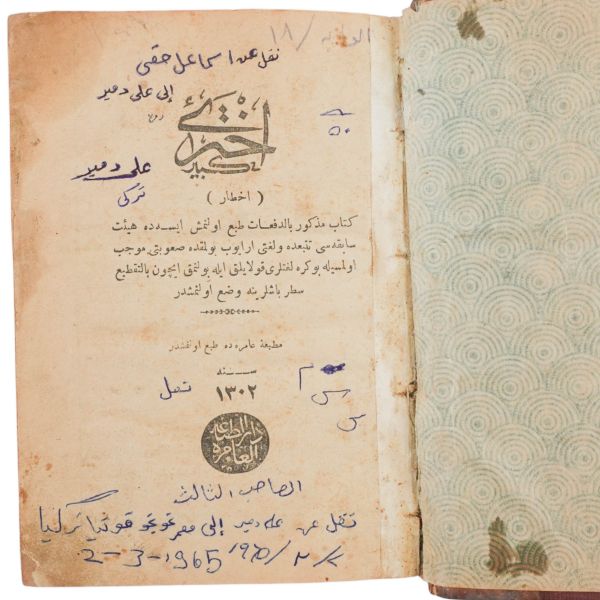 نقل عن اسماعيل حقي
إلى علي دمير
اختری
كبير
علي دمير
تركي
( اخطار )
كتاب مذكور بالدفعات طبع اولنمش ايسه ده هيئت
سابقه سی تتبعده ولغتی ارايوب بولمقده صعوبتی موجب
اولمسيله بوكره لغتلری قولايلق ايله بولنمق ايچون بالتقطيع
سطر باشلرينه وضع اولنمشدر
مطبعهٔ عامره ده طبع اولنمشدر
سنه
١٣٠٢
نقل
دار الطباعة
العامرة
الصاحب الثالث
نقل عن علي دمير إلى معمر قونيا تركيا
2-3-1965